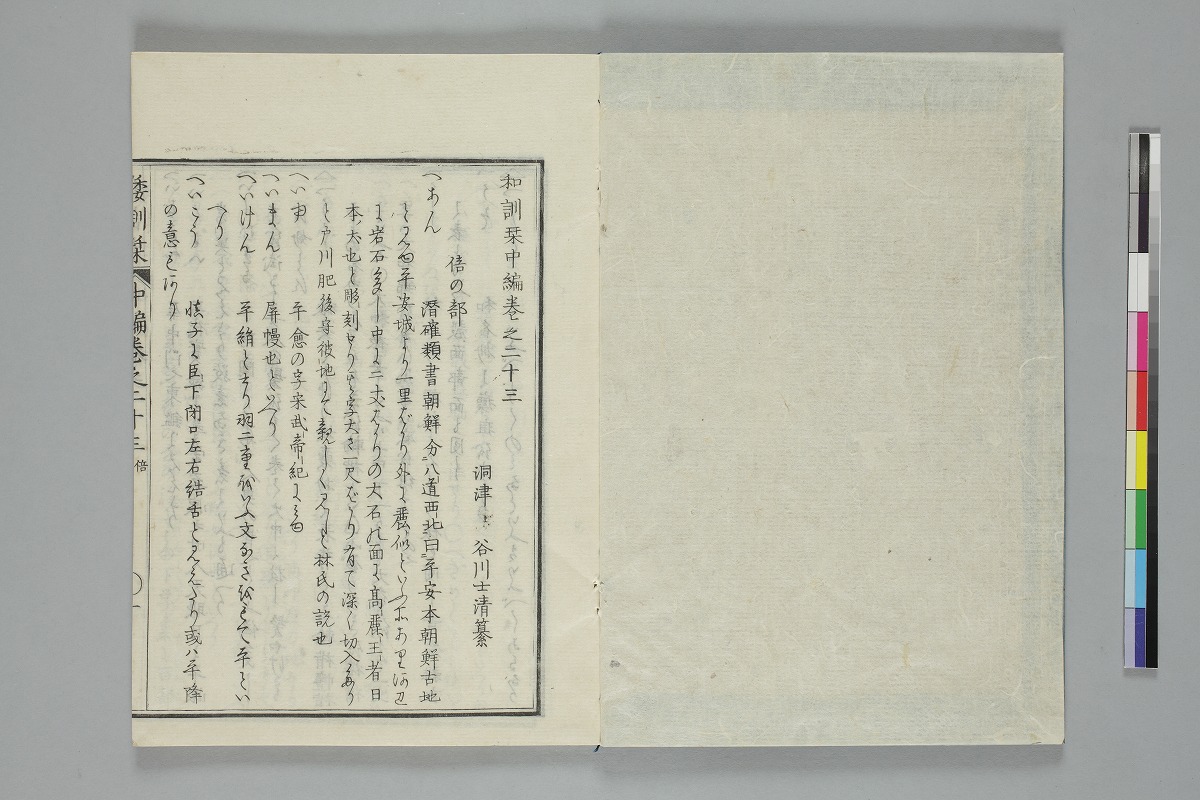 和訓栞中編巻之二十三
洞津 谷川士清纂
倍の部
へあん 潜確類書朝鮮分八道西北曰平安本朝鮮古地
とみゆ平安城より一里ばかり外に麗仙といふ所あり
に岩石多し中に二丈ばかりの大石の面に高麗王者日
本犬也と彫刻せり其字大さ一尺ばかり有て深く切入あり
と戸川肥後守彼地にて親しくみしと林氏の説也
へいゆ 平愈の字宋武帝紀にみゆ
へいまん 屏幔也といへり
へいけん 平絹と書り羽二重をいふ文なきをもて平とい
へり
へいこう 慎子に臣下閉口左右結舌とみえたり或ハ平降
の意もあり
倭訓栞 中編巻之二十三 倍 一